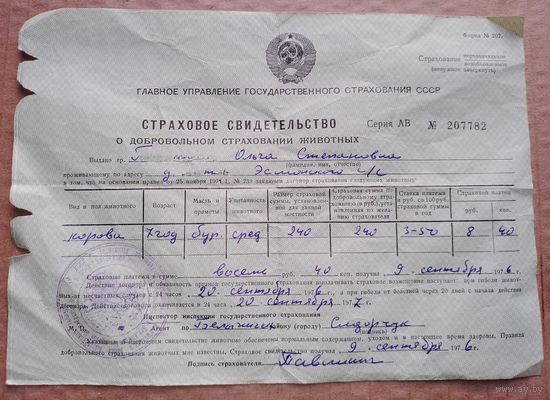 Форма № 202.
Страхование первоначальное
возобновленное
(ненужное зачеркнуть)
ГЛАВНОЕ УПРАВЛЕНИЕ ГОСУДАРСТВЕННОГО СТРАХОВАНИЯ СССР
СТРАХОВОЕ СВИДЕТЕЛЬСТВО Серия АВ № 207782
О ДОБРОВОЛЬНОМ СТРАХОВАНИИ ЖИВОТНЫХ
Выдано гр. Ольга Степановна
(фамилия, имя, отчество)
проживающему по адресу д. Эсмонского с/с
в том, что на основании правил 25 ноября 1974 г. № 239 заключен договор страхования следующих животных:
Вид и пол животного
Возраст
Масть и приметы
Упитанность животного
Размер страховой суммы, установленной для данной местности
Страховая сумма по добровольному страхованию (в руб.), установленная по желанию страхователя
Ставка платежа в руб. со 100 руб. страховой суммы в год
Страховой платеж
руб. коп.
корова 7 год бур. сред 240 240 3-50 8 40
Страховые платежи в сумме восемь руб. 40 коп. получил 9 сентября 1976 г.
Действие договора и обязанность органов государственного страхования выплачивать страховое возмещение наступают: при гибели животных от несчастных случаев с 24 часов 20 сентября 1976 г. и при гибели от болезней через 20 дней с начала действия
договора. Действие договора с 24 часов 20 сентября 1977 г.
Инспектор инспекции государственного страхования
М. П. Агент по Белыничск району (городу) Сидорчук
(подпись)
Указанные в настоящем свидетельстве животные обеспечены нормальным содержанием, уходом и в настоящее время здоровы. Правила
добровольного страхования животных мне известны. Страховое свидетельство получил 9 сентября 1976 г.
Подпись страхователя
ay.by